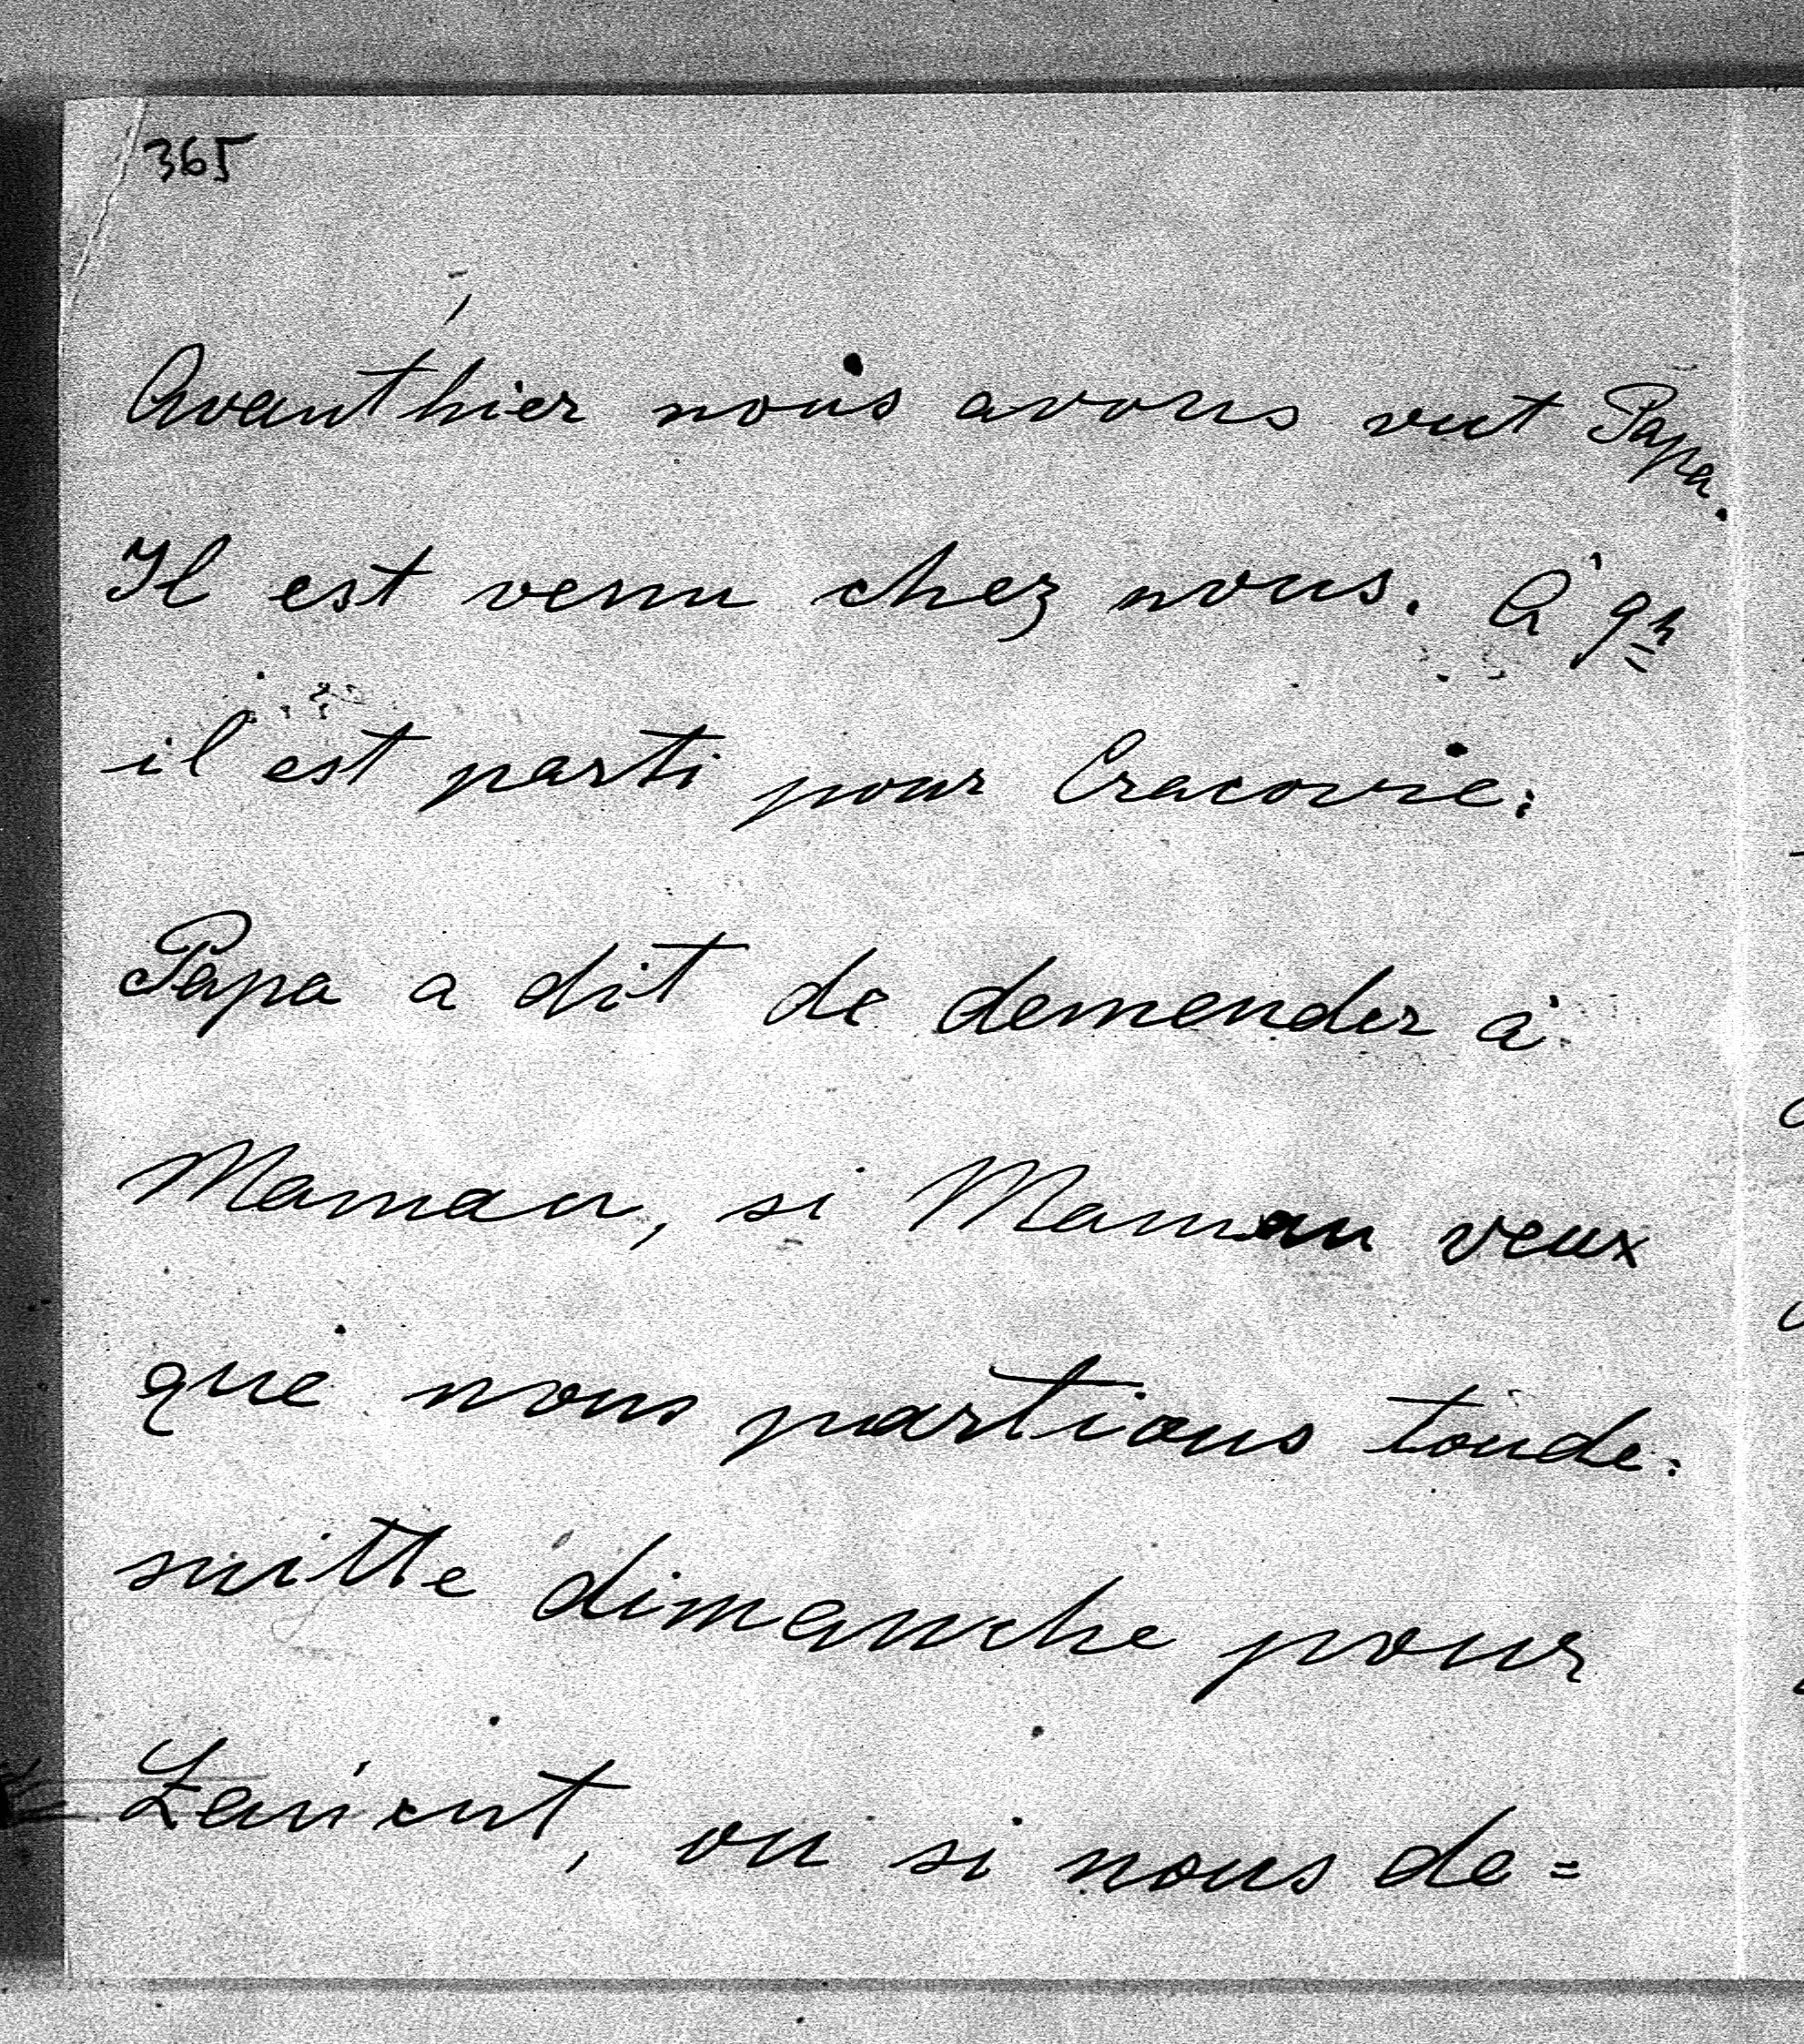 365
Avanthier nous avons vut Papa.
Il est venu chez nous. A 9h
il est parti pour Cracovie.
Papa a dit de demender à
Maman, si Maman veux
que nous partions toude=
suitte dimanche pour
ou si nous de=